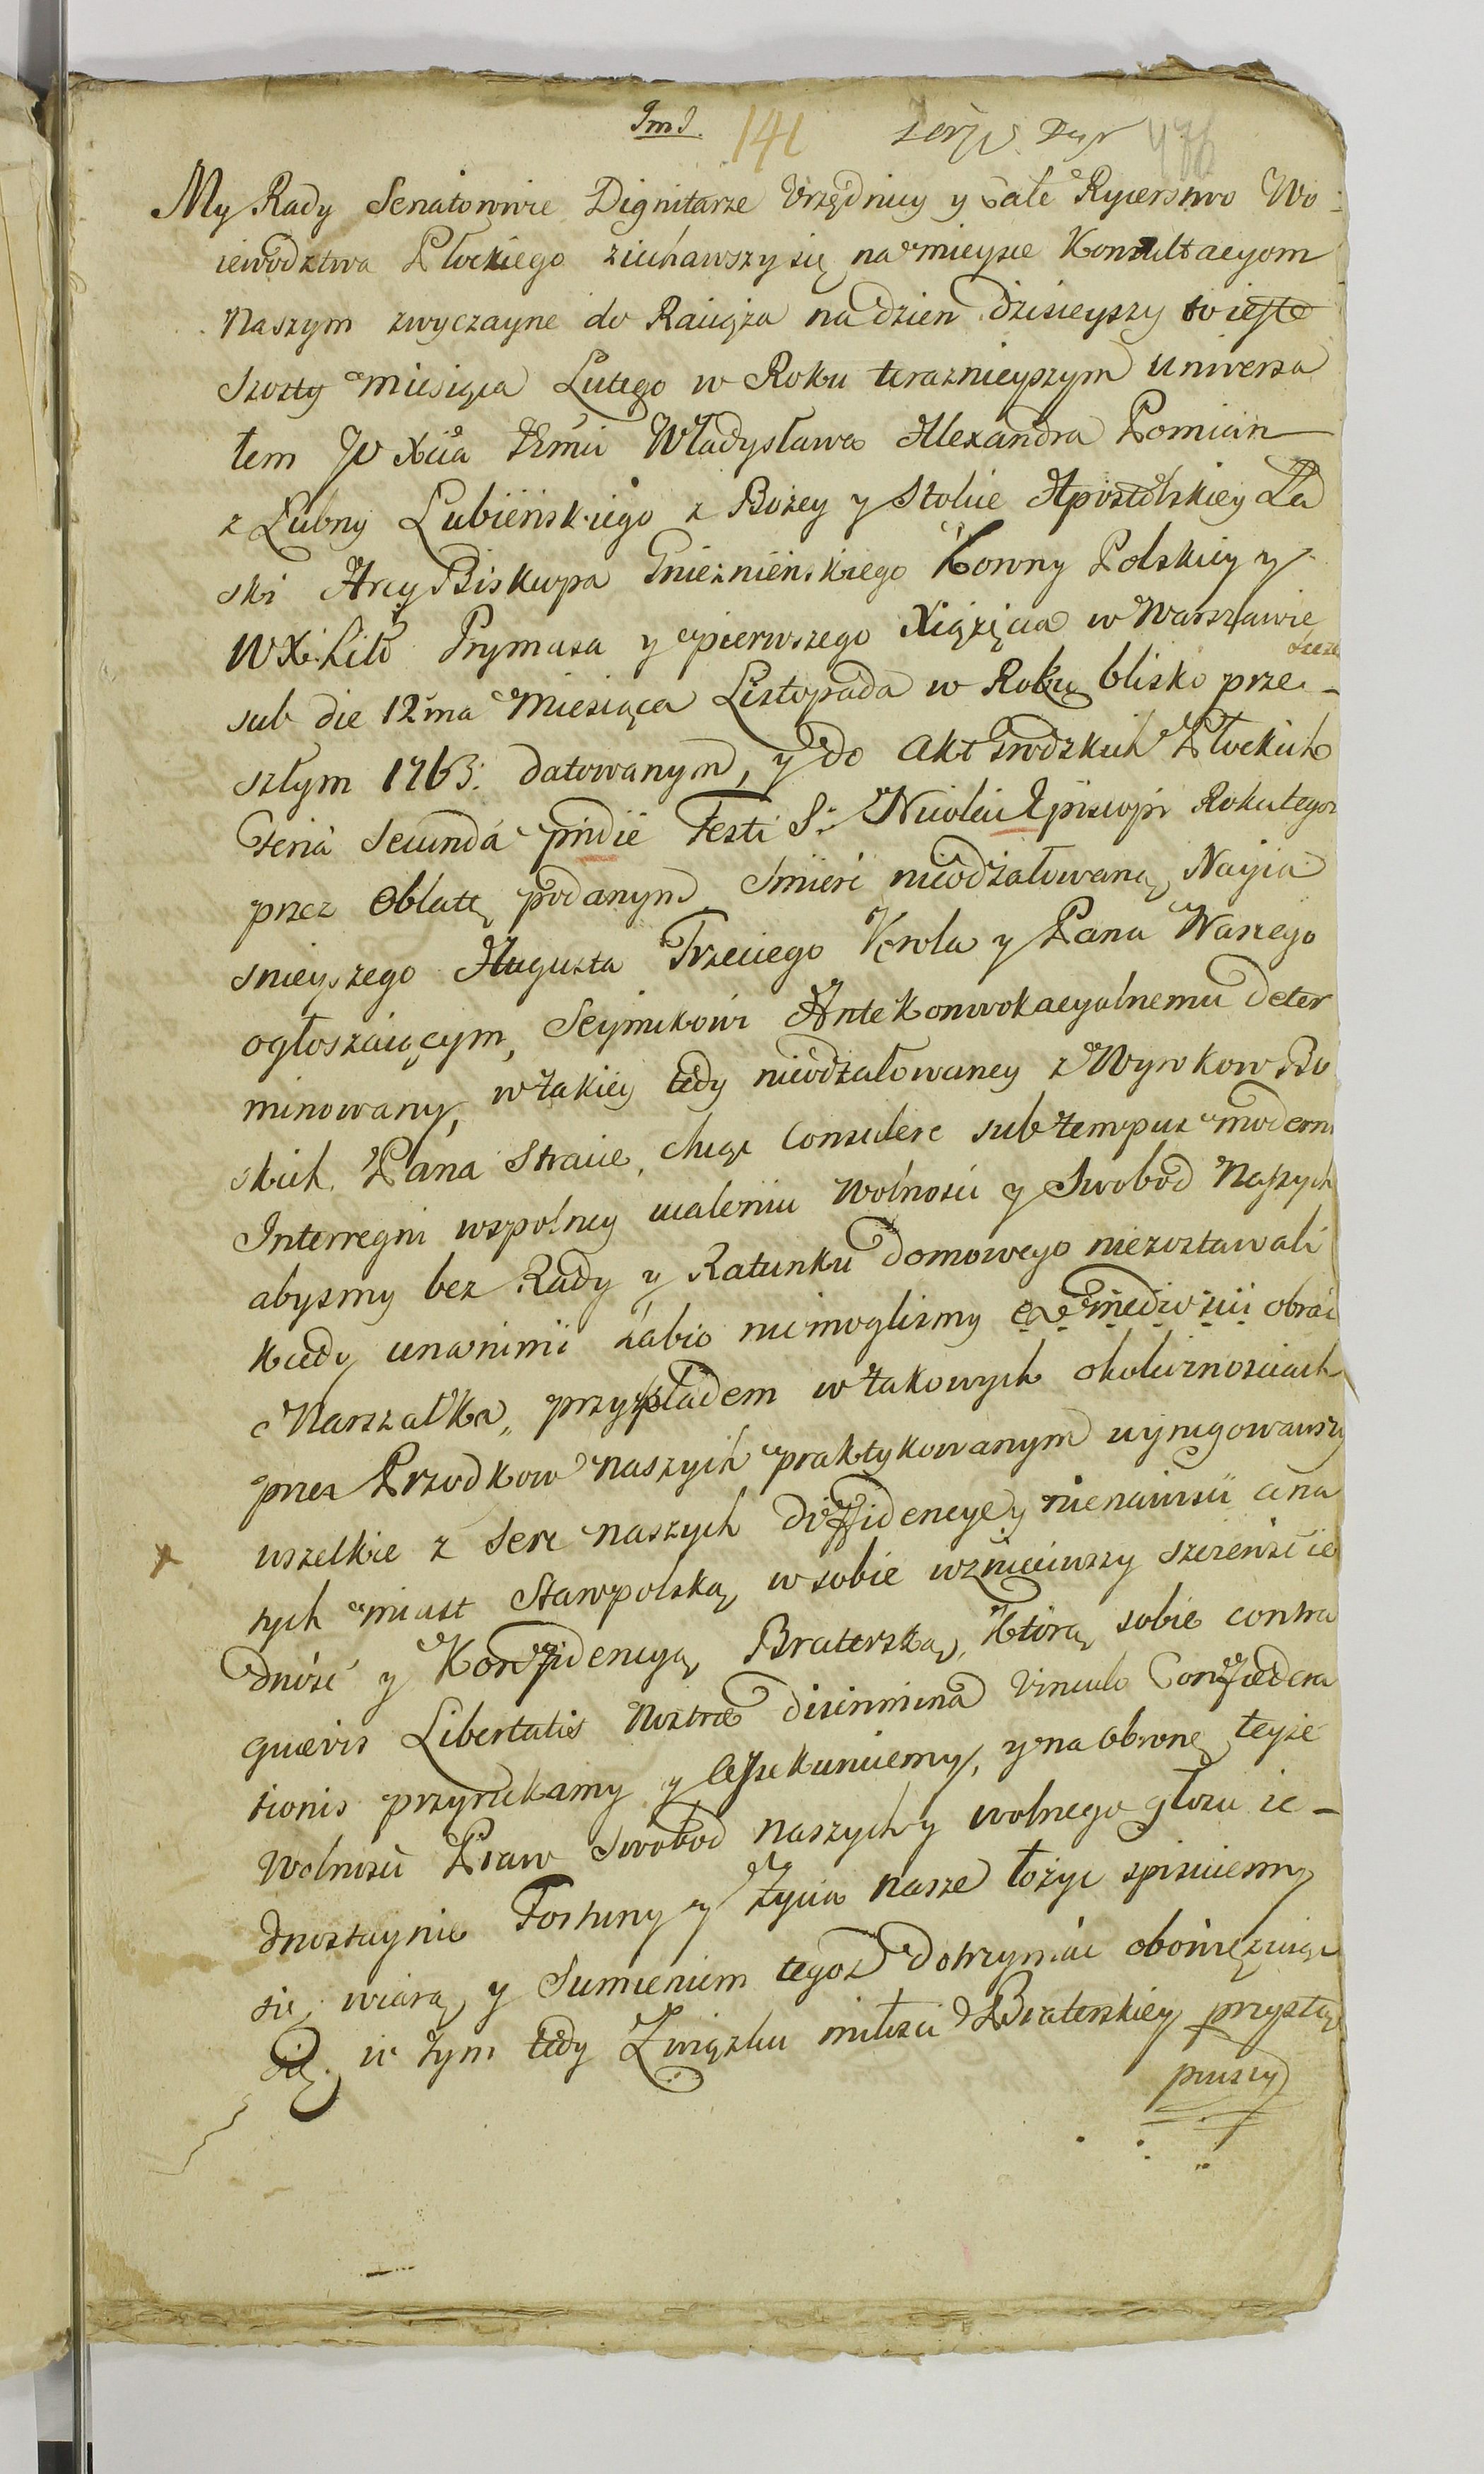 Im J. 141
My Rady Senatorowie Dignitarze Vrzędnicy y Całe Rycerstwo Wo-
iewodztwa Płockiego ziechawszy się na mieysce Konsultacyom
Naszym zwyczayne do Raiąża na dzien dzisieyszy to iest
szosty miesiąca Lutego w Roku teraznieyszym Uniwersa
łem JO Xcia Jmci Władysława Alexandra Pomian
z Łubny Łubieńskiego z Bożey y Stolice Apostolskiey Ła
ski Arcy Biskupa Gnieznieńskiego Korony Polskiey y
W X. Litt Prymasa y pierwszego Xiążęcia w Warszawie
sub die 12ma Miesiąca Listopada w Roku blisko prze-
szłym 1763. datowanym, y do Akt Grodzkich Płockich
Feria Secunda pridie Festi S. Nicolai Episcopi Roku tegoz
przez Oblatę podanym, Smierć nieodżałowaną Nayia
snieyszego Augusta Trzeciego Krola y Pana Naszego
ogłaszaiącym, Seymikowi Antekonwokacyalnemu deter
minowany, w takiey tedy nieodżałowaney z Wyrokow Bo
skich Pana Stracie, chcąc Consulere sub tempus moderni
Interregni wspolney caleniu Wolnosci y Swobod Naszych
abysmy bez Rady y Ratunku domowego niezostawali
kiedy unanimi żabio niemoglismy e medio sui obrać
Marszałka, przykładem w takowych okolicznosciach
przez Przodkow naszych praktykowanym wyrugowawszy
wszelkie z Serc naszych diffidencye y nienawisci a na
tych miast Staropolską w sobie wznieciwszy szczerość ie
dność y Konfidencyą Braterską, ktorą sobie contra
quævis Libertatis Nostræ discrimina Vinculo Confœdera
tionis przyrzekamy y assekuruiemy, y na obronę teyże
Wolnosci Praw Swobod naszych y wolnego głosu ie-
dnostaynie Fortuny y Życia nasze łożyc spisuiemy
się, wiarą y Sumieniem tegoz dotrzymać obowięzuiąc
się, w tym tedy Związku miłosci Braterskiey przystą
piwszy